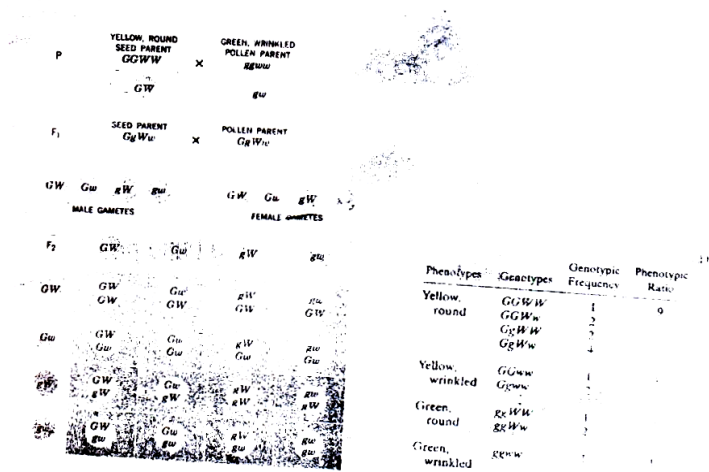 YELLOW, ROUND
SEED PARENT
GGWW
GREEN, WRINKLED
POLLEN PARENT
ggww
P ×
GW gw
SEED PARENT POLLEN PARENT
F1 GgWw × GgWw
GW Gw gW gw GW Gw gW
MALE GAMETES FEMALE GAMETES
F2 GW Gw gW gw
GW GW Gw gW gw
GW GW GW GW
Gw GW Gw gW gw
Gw Gw Gw Gw
gW GW Gw gW gw
gW gW gW gW
gw GW Gw gW gw
gw gw gw gw
Phenotypes Genotypes Genotypic Frequency Phenotypic Ratio
Yellow, round GGWW 1 9
GGWw 2
GgWW 2
GgWw 4
Yellow, wrinkled GGww 1
Ggww
Green, round ggWW 1
ggWw 2
Green, wrinkled ggww